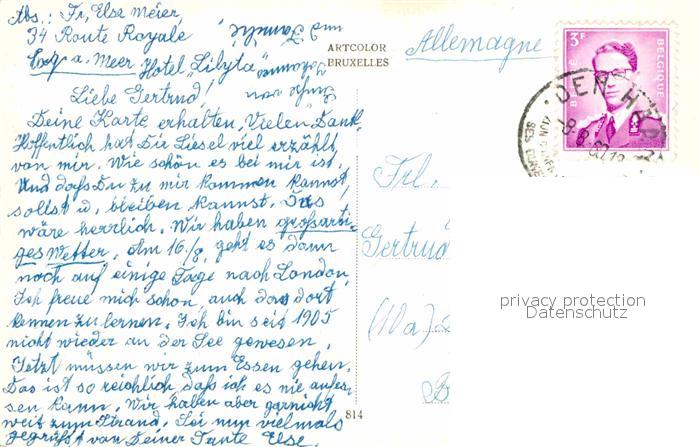 Abs.: Fr. Else Meier,
34 Route Royale
Coq a. Meer Hotel „Lilyta"
Liebe Gertrud!
Deine Karte erhalten, Vielen Dank.
Hoffentlich hat Dir Liesel viel erzählt
von mir. Wie schön es bei mir ist.
Und daß Du zu mir kommen kannst,
sollst u. bleiben kannst. Das
wäre herrlich. Wir haben großarti-
ges Wetter. Am 16./8. geht es dann
noch auf einige Tage nach London,
Ich freue mich schon, auch das dort
kennen zu lernen. Ich bin seit 1905
nicht wieder an der See gewesen.
Jetzt müssen wir zum Essen gehen.
Das ist so reichlich, daß ich es nie aufes-
sen kann. Wir haben aber garnicht
weit zum Strand. Sei nun vielmals
gegrüßt von Deiner Tante Else.
und Familie
ARTCOLOR
BRUXELLES
814
Allemagne
3F
BELGIQUE
BELGIË
DEN HA
Frl.
Gertrud
(10a)
privacy protection
Datenschutz